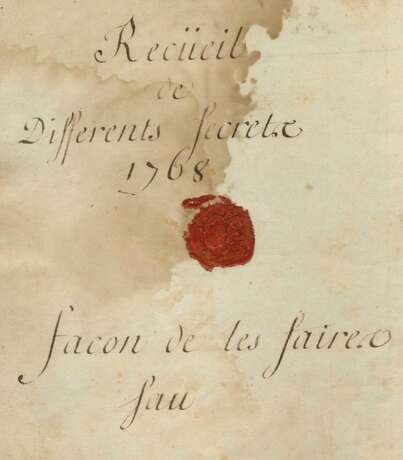 Recüeil
de
Differents Secrets
1768
façon de les faires
Sau